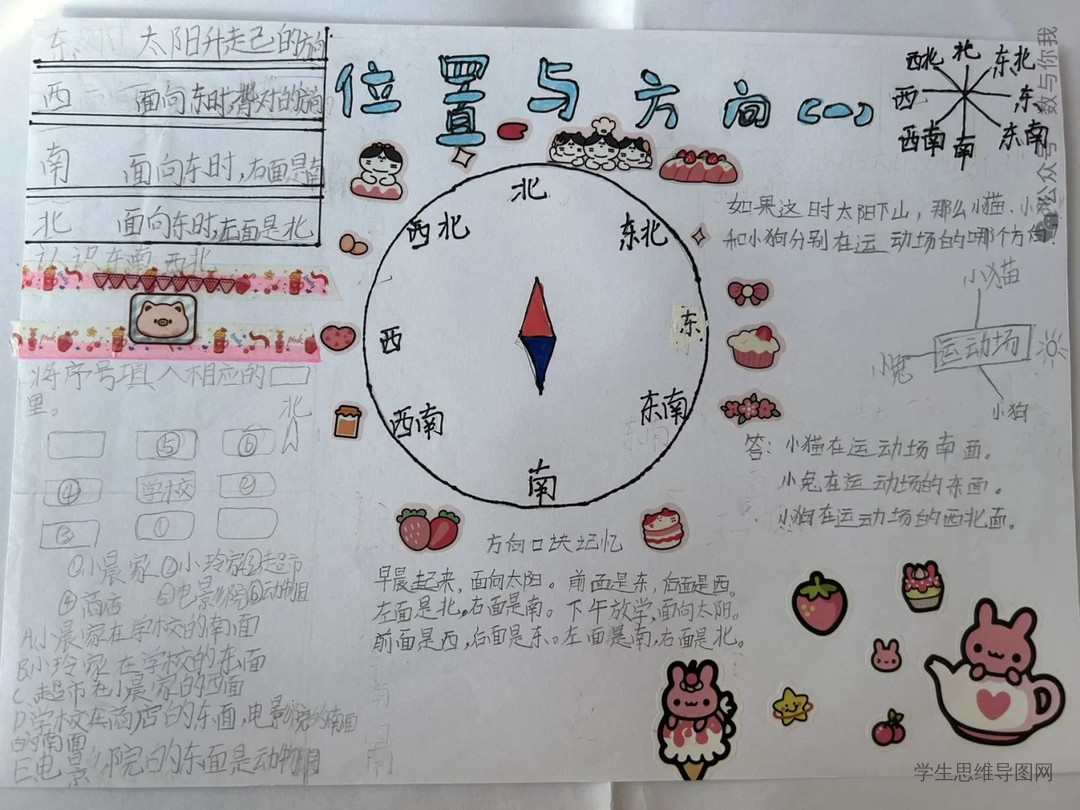 位置与方向(一)
东 太阳升起的方向
西 面向东时,背对的方向
南 面向东时,右面是南
北 面向东时,左面是北
认识东南西北
将序号填入相应的
里。
北
⑤ ⑥
④ 学校 ②
③ ①
①小晨家②小玲家③超市
④商店 ⑤电影院⑥动物园
A.小晨家在学校的南面
B.小玲家在学校的东面
C.超市在小晨家的西面
D.学校在商店的东面,电影院的南面
的南面
E.电影院的东面是动物园
北
西北 东北
西 东
西南 东南
南
方向口诀记忆
早晨起来,面向太阳。前面是东,后面是西。
左面是北,右面是南。下午放学,面向太阳。
前面是西,后面是东。左面是南,右面是北。
西北 北 东北
西 东
西南 南 东南
如果这时太阳下山,那么小猫、小兔
和小狗分别在运动场的哪个方向
小猫
小兔 运动场
小狗
答:小猫在运动场南面。
小兔在运动场的东面。
小狗在运动场的西北面。
公众号 数与你我
学生思维导图网